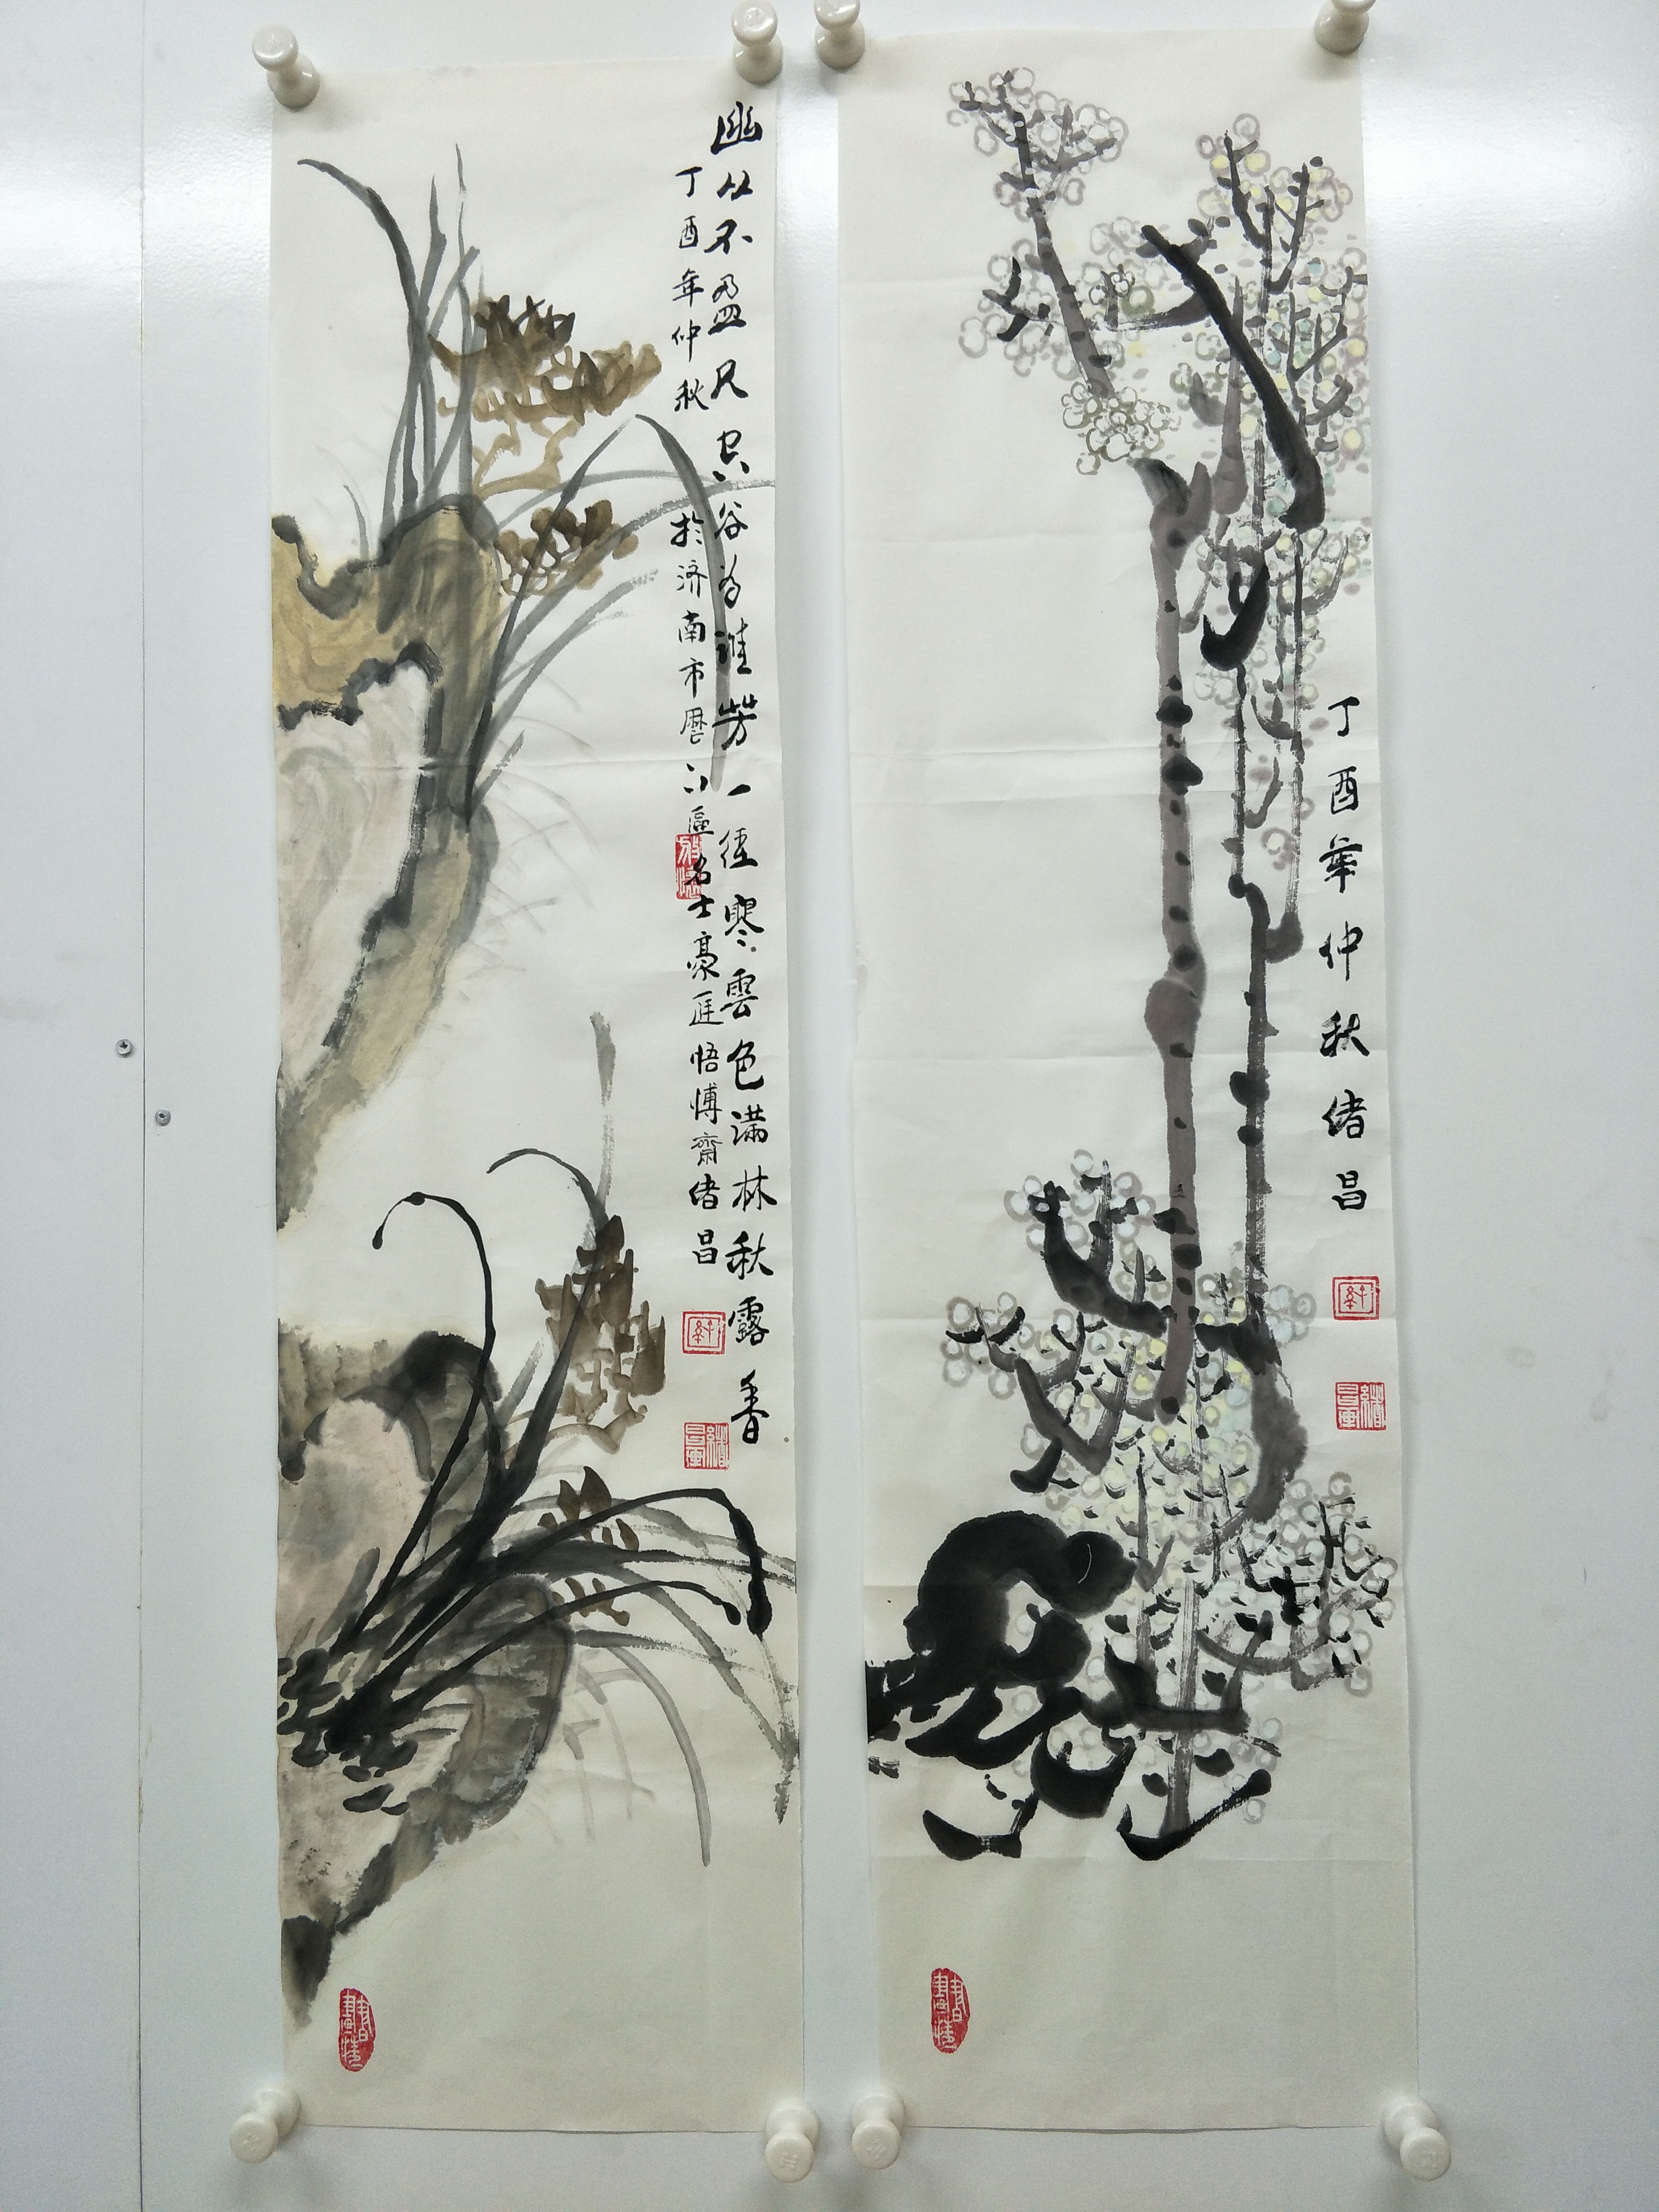 幽丛不盈尺空谷为谁芳一径寒雲色满林秋露香
丁酉年仲秋
於济南市歷下區名士豪庭悟博齋绪昌
丁酉年仲秋绪昌